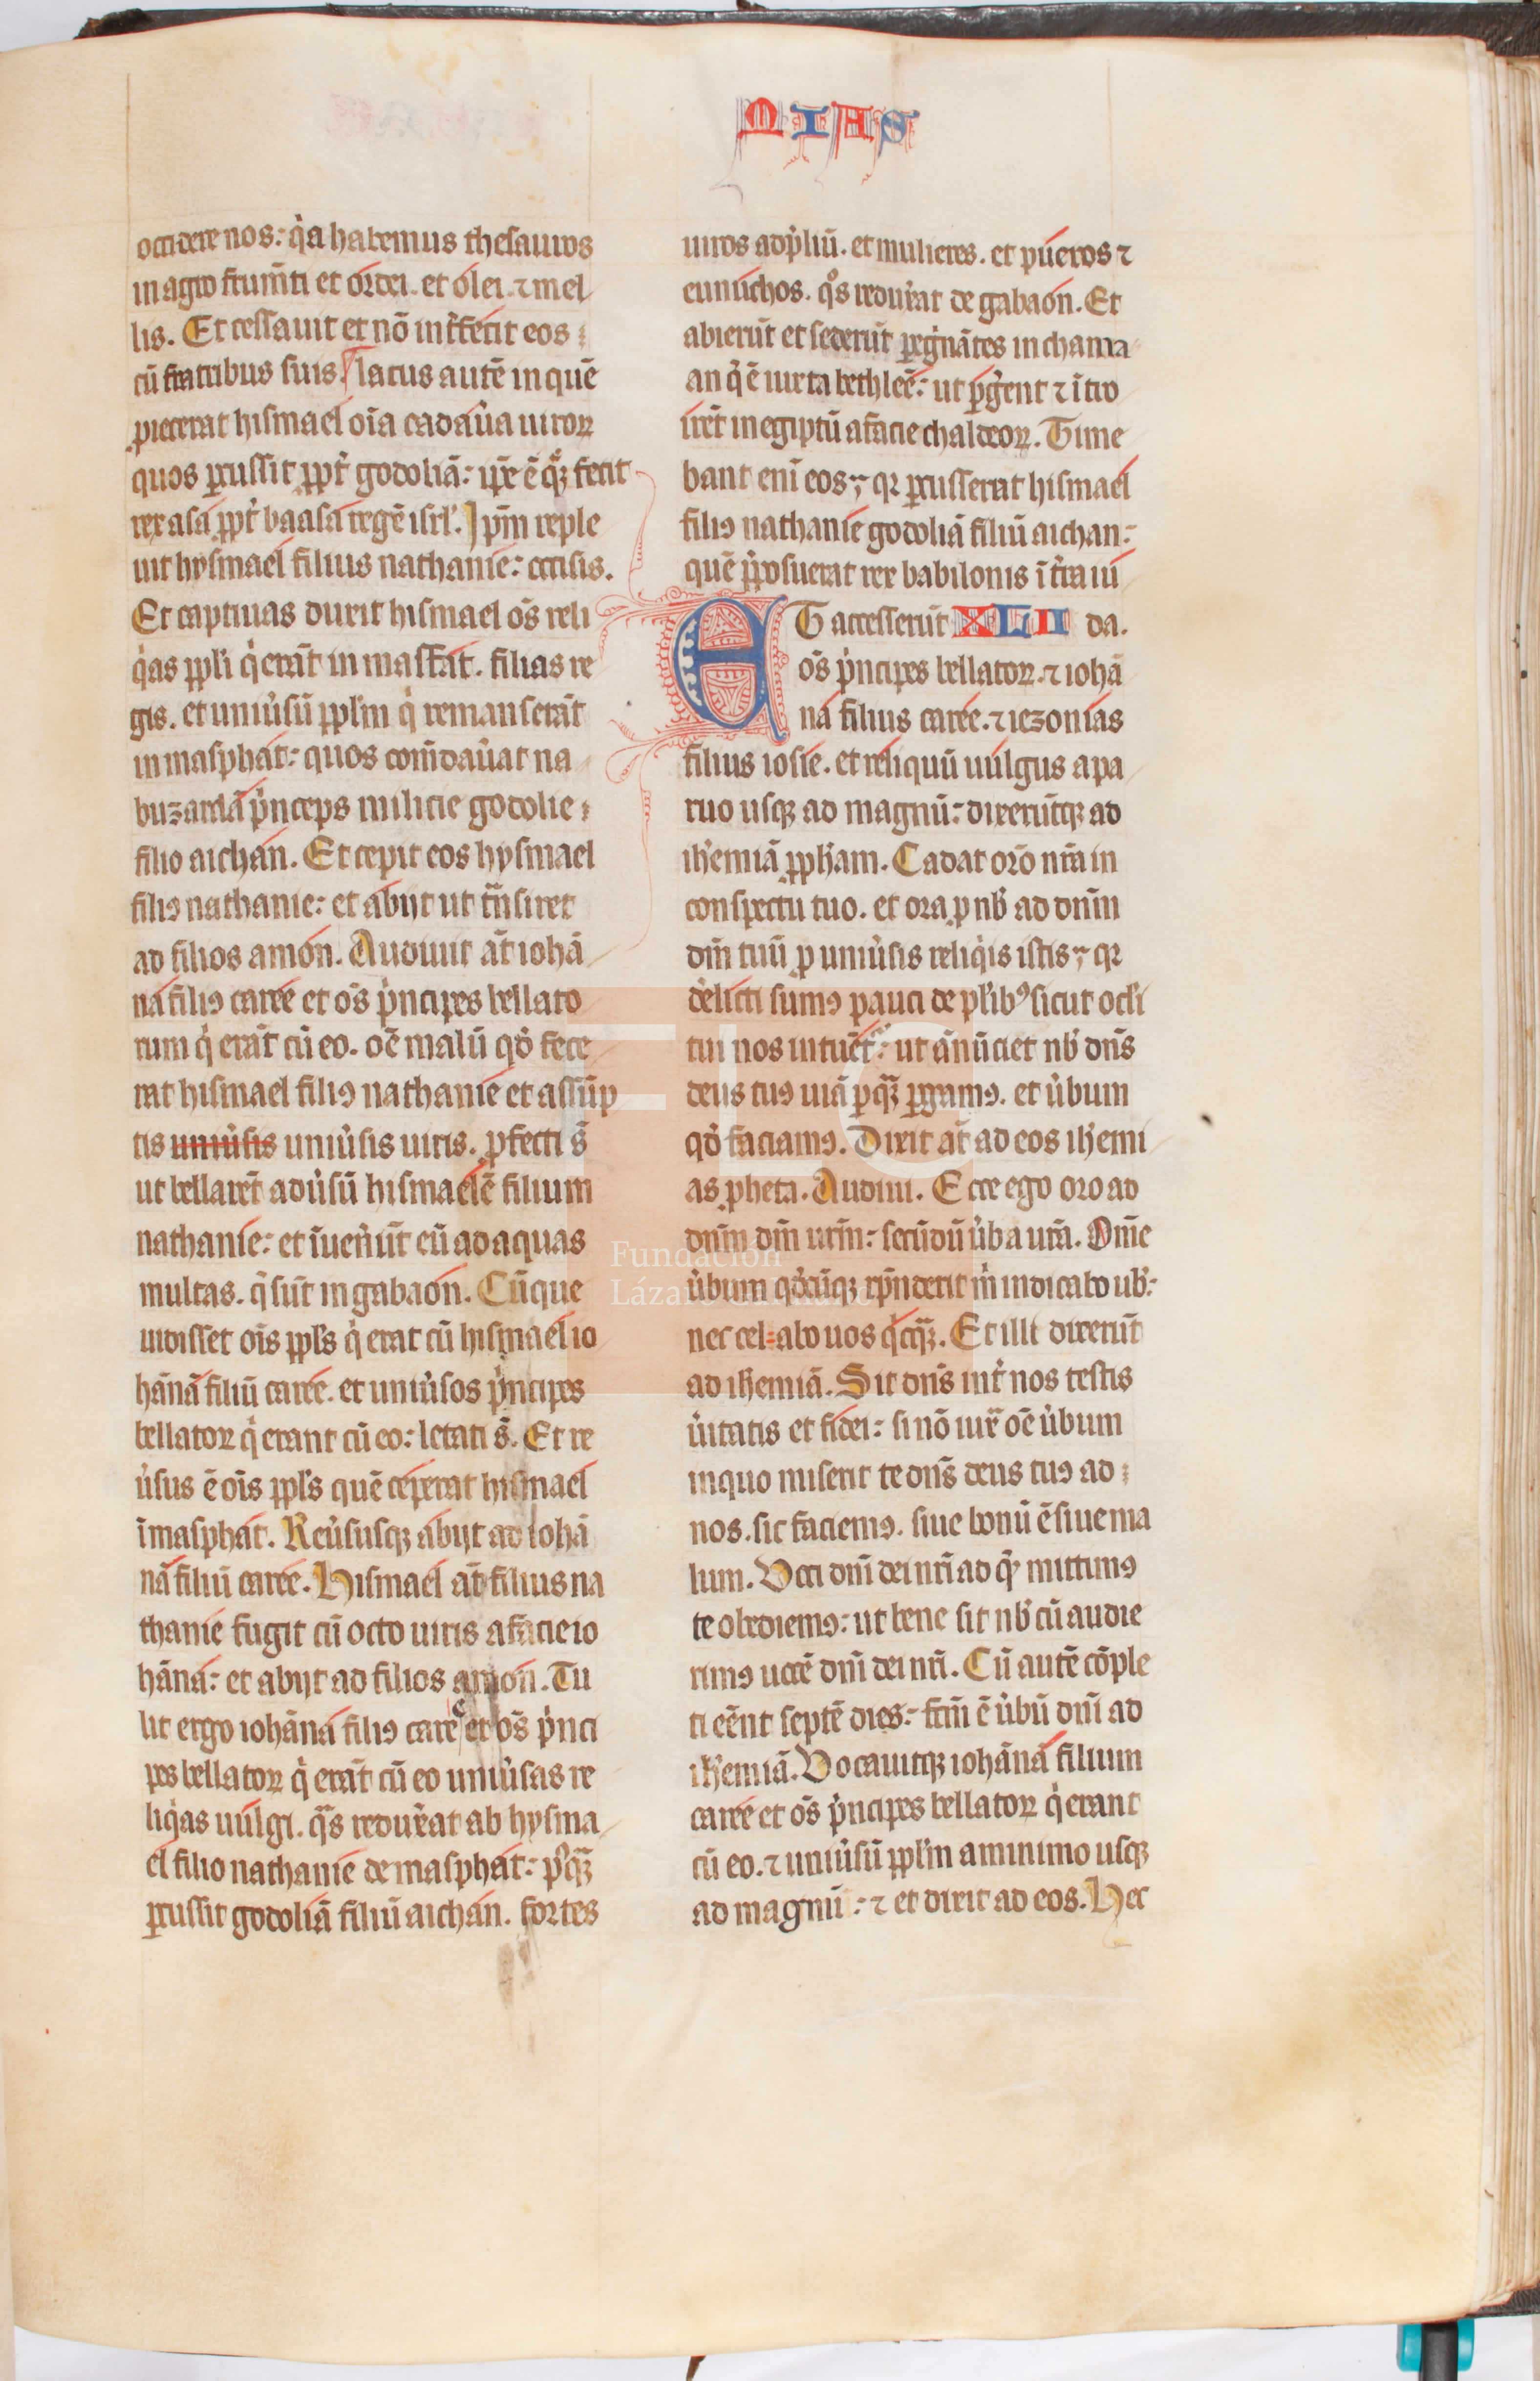 MIAS
occidere nos: q̇a habemus thesauros
in agro frum̄ti et ordei. et olei. ⁊ mel
lis. Et cessauit et nō int̄fecit eos
cū fratribus suis. lacus autē in quē
proiecerat hismael oīa cadau̇a uiroꝝ
quos ꝑcussit ꝓpt̄ godoliā: ip̄e ē q̄ꝫ fecit
rex asa ꝓpt̄ baasa regē isrl'. Ip̄m reple
uit hysmael filius nathanie: occisis.
Et captiuas duxit hismael oēs reli
q̇as ppl'i q̇ erāt in masfat. filias re
gis. et uniu̇sū ppl'm q̇ remanserāt
in masphat: quos com̄dau̇at na
buzardā ṗnceps milicie godolie
filio aichan. Et cepit eos hysmael
filiꝰ nathanie: et abijt ut t̄nsiret
ad filios amon. Audiuit at̄ iohā
na filiꝰ caree et oēs ṗncipes bellato
rum q̇ erāt cū eo. oē malū qḋ fece
rat hismael filiꝰ nathanie et assūp
tis uniu̇sis uniu̇sis uiris. ꝓfecti s̄
ut bellarēt adu̇sū hismaelē filium
nathanie: et īuen̄ūt eū ad aquas
multas. q̄ sūt in gabaon. Cūque
uidisset oīs ppl's q̇ erat cū hismael io
hānā filiū caree. et uniu̇sos ṗncipes
bellatoꝝ q̇ erant cū eo: letati s̄. Et re
u̇sus ē oīs ppl's quē ceperat hismael
ī masphat. Reu̇susqꝫ abijt ad iohā
nā filiū caree. Hismael at̄ filius na
thanie fugit cū octo uiris a facie io
hāna: et abijt ad filios amon. Tu
lit ergo iohāna filiꝰ caree et oēs ṗnci
pes bellatoꝝ q̇ erāt cū eo uniu̇sas re
liq̇as uulgi. q̄s redux̄at ab hysma
el filio nathanie de masphat: pꝰq̄ꝫ
ꝑcussit godoliā filiū aichan. fortes
uiros ad p̄liū. et mulieres. et pueros ⁊
eunuchos. q̊s redux̄at de gabaon. Et
abierūt et sederūt ꝑeg̓nātes in chama
an q̇ ē iuxta bethleē: ut ꝑg̓ent ⁊ ītro
irēt in egiptū a facie chaldeoꝝ. Time
bant enī eos; qꝛ ꝑcusserat hismael
filiꝰ nathanie godoliā filiū aichan:
quē p̄posuerat rex babilonis ī t̄ra iu
ET accesserūt XLII da.
oēs ṗncipes bellatoꝝ. ⁊ iohā
na filius caree. ⁊ iezonias
filius iosie. et reliquū uulgus a pa
ruo usqꝫ ad magnū: dixerūtqꝫ ad
ih'emiā ꝓph'am. Cadat orō nr̄a in
conspectu tuo. et ora ꝓ nb' ad dn̄m
dm̄ tuū ꝓ uniu̇sis reliq̇is istis; qꝛ
derelicti sumꝰ pauci de pl'ibꝰ sicut ocl'i
tui nos intuēt̄: ut ānūciet nb' dn̄s
deus tuꝰ uiā ꝑ q̄ꝫ ꝑgamꝰ. et u̇bum
qḋ faciamꝰ. Dixit at̄ ad eos ih'emi
as ꝓpheta. Audiui. Ecce ego oro ad
dn̄m dm̄ ur̄m: secūdū u̇ba ur̄a. Om̄e
u̇bum qḋcūqꝫ rn̄derit m̓ indicabo ub':
nec cel=abo uos q̇cq̄ꝫ. Et illi dixerūt
ad ih'emiā. Sit dn̄s int̄ nos testis
u̇itatis et fidei: si nō iux̄ oē u̇bum
in quo miserit te dn̄s deus tuꝰ ad
nos. sic faciemꝰ. siue bonū ē siue ma
lum. Voci dn̄i dei nr̄i ad q̄ mittimꝰ
te obediemꝰ: ut bene sit nb' cū audie
rimꝰ uocē dn̄i dei nr̄i. Cū autē cōple
ti eēnt septē dies: fc̄m ē u̇bū dn̄i ad
ih'emiā. Vocauitqꝫ iohānā filium
caree et oēs ṗncipes bellatoꝝ q̇ erant
cū eo. ⁊ uniu̇sū ppl'm a minimo usqꝫ
ad magnū: ⁊ et dixit ad eos. Hec
FLG
Fundación
Lázaro Galdiano